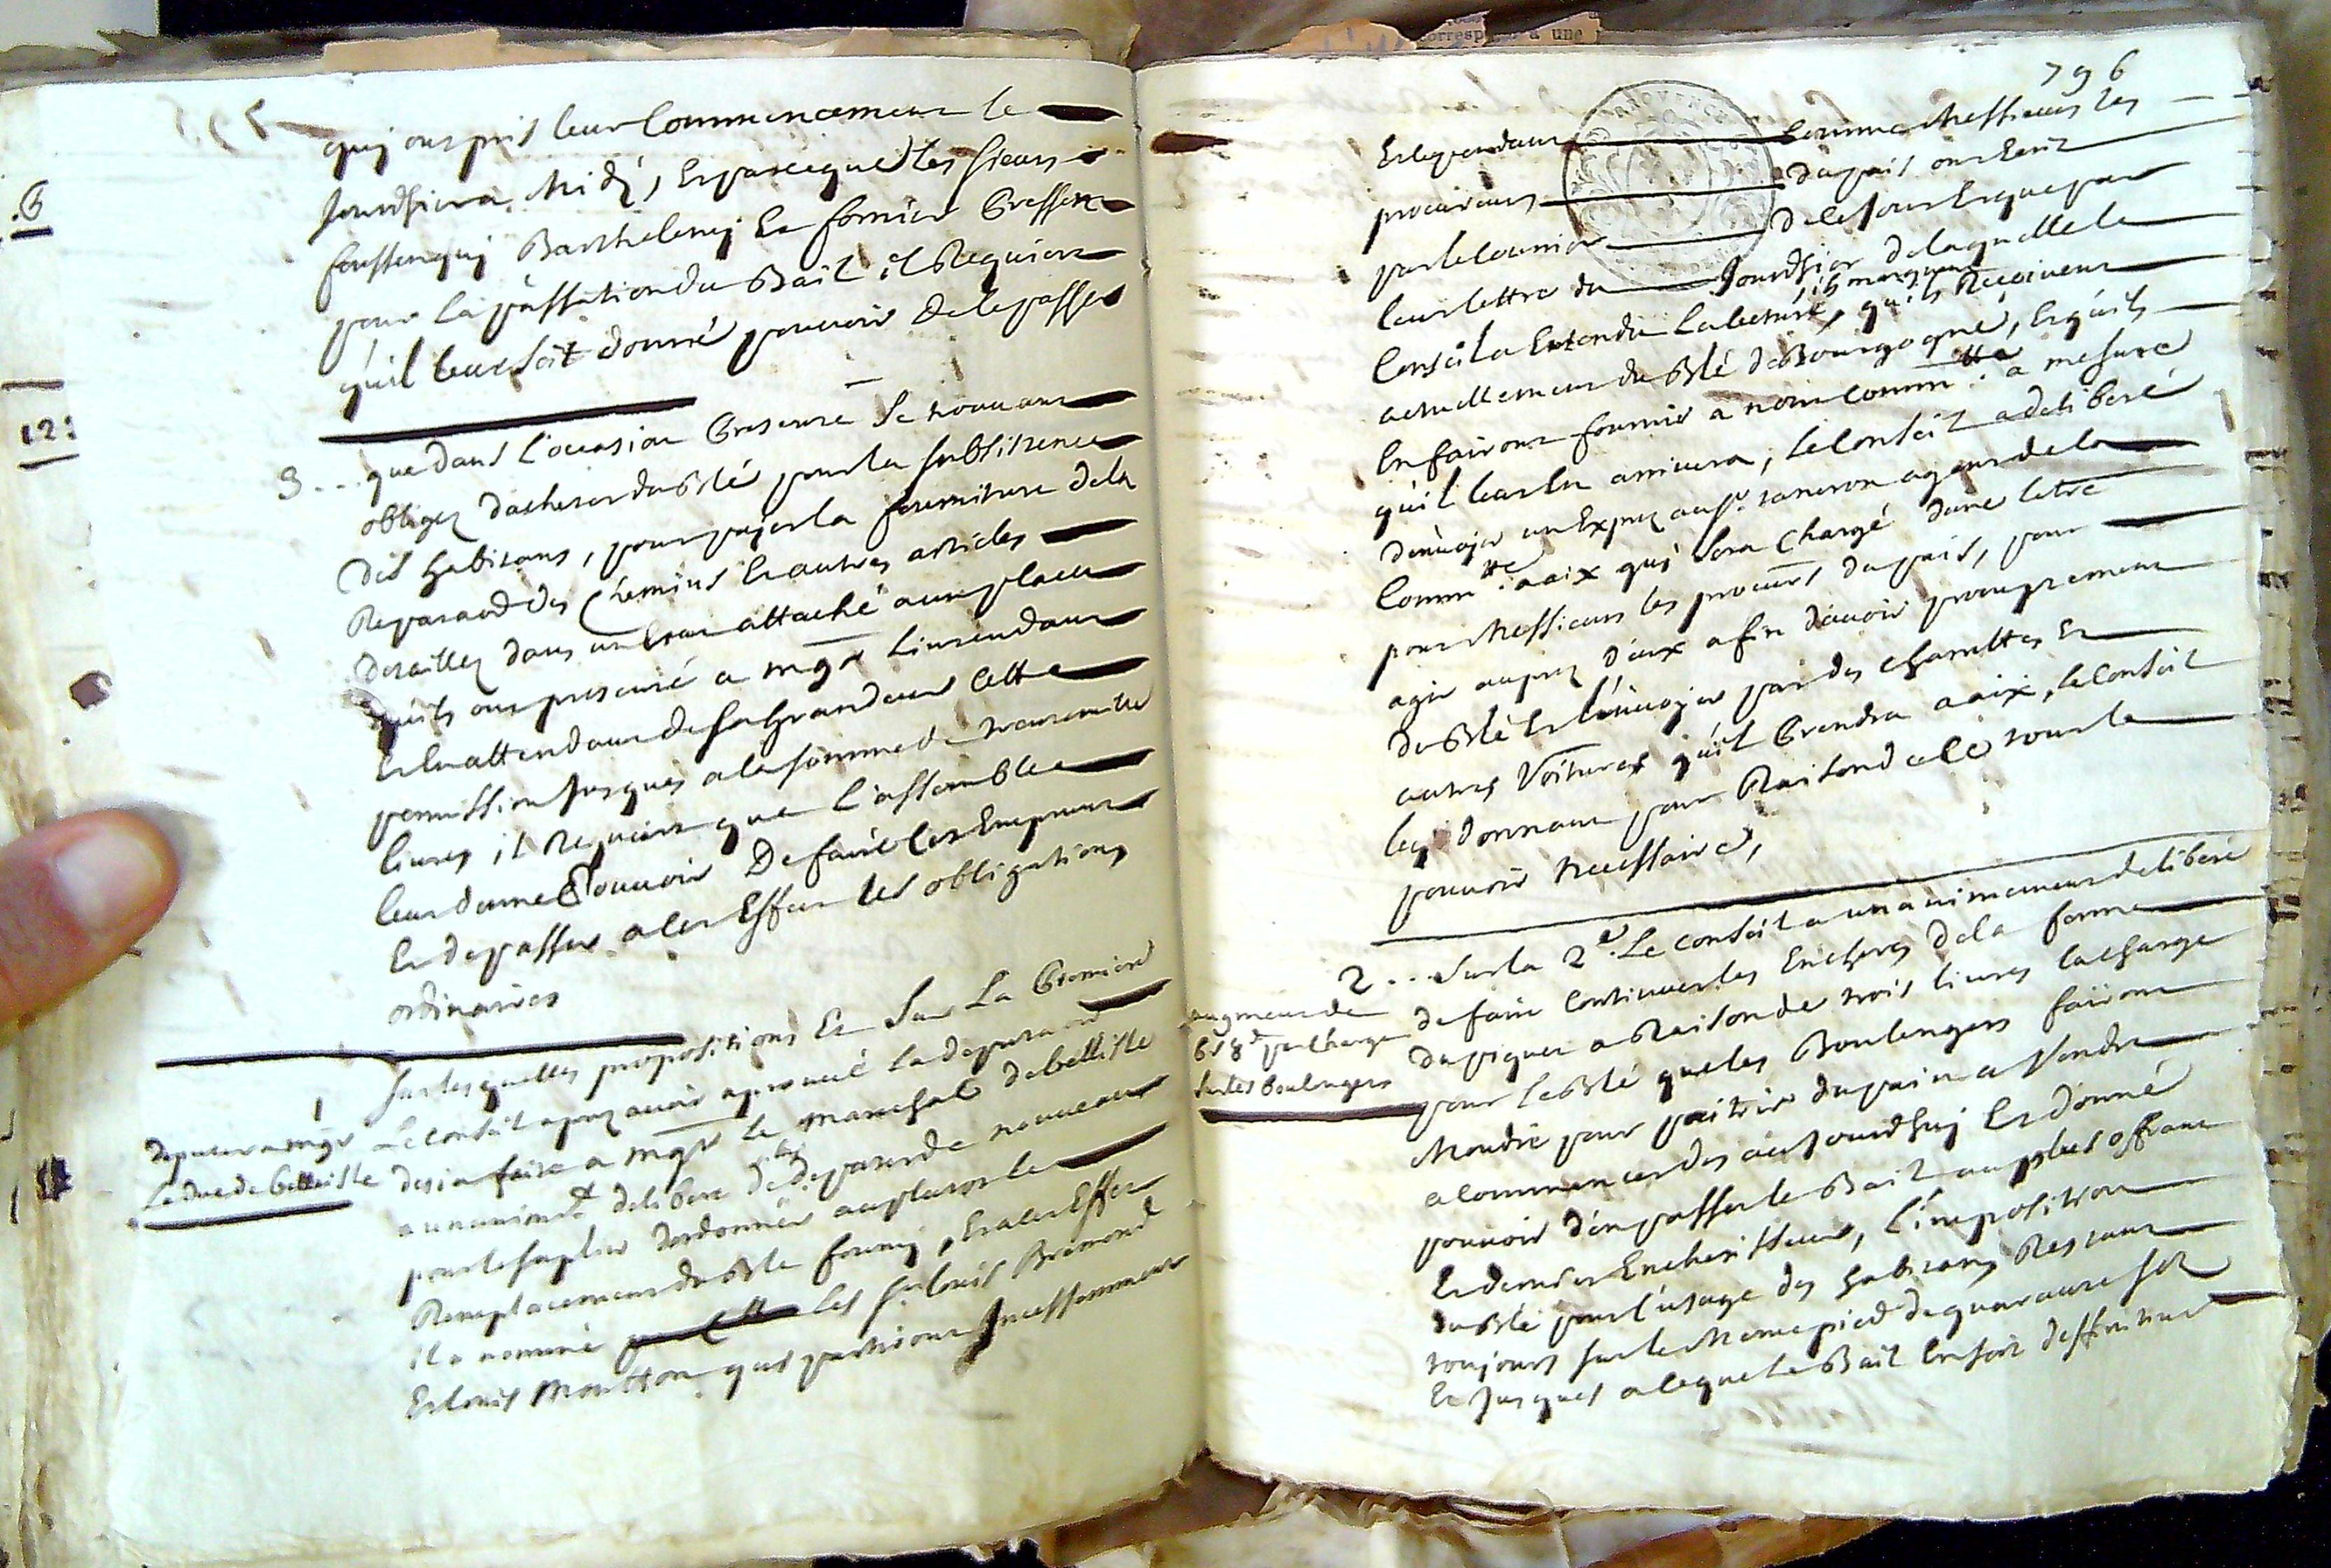 quj ont pris leur Commencement le
Jourdhier a Midÿ, Et parceque les sieurs
foussenquj Barthelemj Et fornier Pressent
pour la passation du Bail il Requiert
qu'il leur soit donné pouvoir de le passer
3... que dans l'occasion Presente se trouvant
obligez dacheter du Blé pour la subsistence
des habitans, pour payer la fourniture de la
Reparaon des Chemins Et autres articles
detaillez dans un Etat attaché au placet
quils ont presenté a mgr L'intendant
Et En attendant de sa Grandeur Cette
permission Jusques a la somme de trente mille
livres il Requiert que l'assemblée
leur donne Pouvoir De faire les Emprunt
Et de passer a cet Effet les obligations
ordinaires
sur lesquelles propositions Et Sur La Premiere
1
Le Conseil aprez avoir aprouvé la deputaon
deputer a mgr
le duc de belleisle
desja faite a mgr le Marechal de belleisle
a unanimt delibere de deputer de nouveau
pour le suplier d'ordonner au plutot le
Remplacement du Blé fournj, Et a cet Effet
il a nommé les srs louis Bremond
Et louis moutton quj partiront Incessamment
796
Et cependant Comme Messieurs les
procureurs du païs ont Ecrit
par le Courrier de ce jour Et que par
leur lettre du Jourdhier de laquelle le
Conseil a Entendu la lecture, ils marquent quils Recoivent
actuellement du Blé de Bourgogne, Et quils
En fairont fournir a notre Commtté a mesure
qu'il leur En arrivera, le Conseil a deliberé
d'envoyer un Exprez au sr tancron agent de la
Commtté a aix quj sera Chargé dune lettre
pour Messieurs les procurs du païs, pour
agir auprez d'eux afin d'avoir promptement
du Blé Et l'envoyer par des charettes Et
autres Voitures qu'il Prendra a aix, le Conseil
luy donnant pour Raison de ce tout le
pouvoir Necessaire,
2... Sur la 2e. Le conseil a unanimement deliberé
de faire Continuer les Encheres de la ferme
augment de
6s 8d par charge
sur les boulengers
du piquet a Raison de trois livres la charge
pour le Blé que les Boulengers fairont
Moudre pour paitrir du pain a Vendre
a Commencer des aujourdhuj Et donné
pouvoir d'en passer le Bail au plus offrant
Et dernier Encherisseur, l'imposition
du Blé pour l'usage des habitans Restant
toujours sur le Meme pied de quarante sols
Et Jusques a ce que le Bail En soit deffinitivet